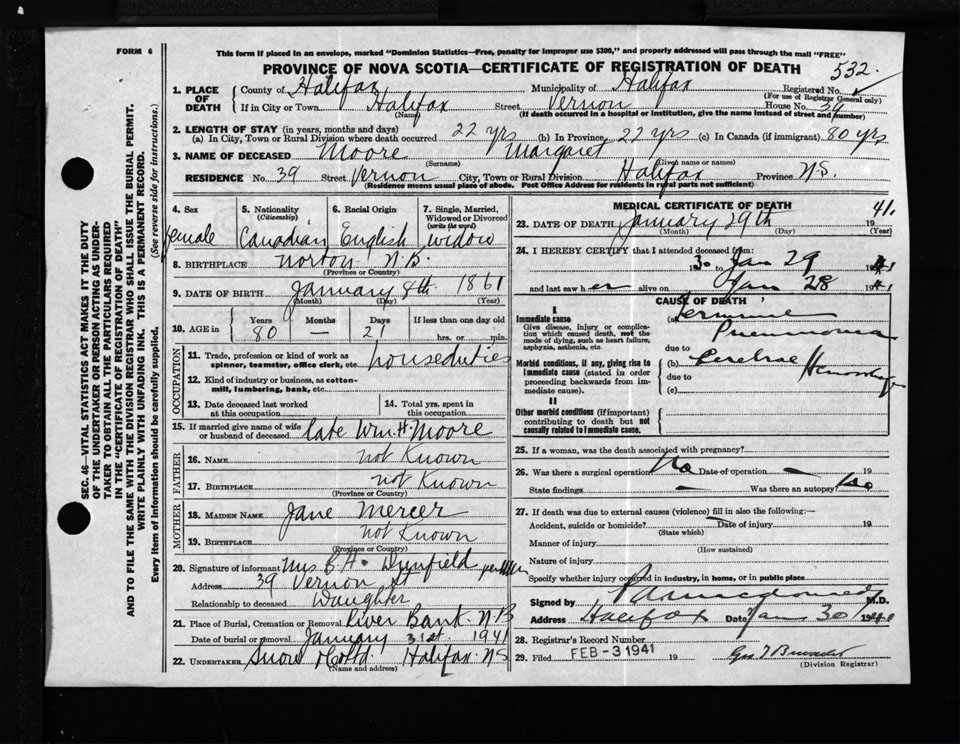 FORM 6
This form if placed in an envelope, marked "Dominion Statistics—Free, penalty for improper use $300," and properly addressed will pass through the mail "FREE"
PROVINCE OF NOVA SCOTIA—CERTIFICATE OF REGISTRATION OF DEATH
532.
SEC. 46—VITAL STATISTICS ACT MAKES IT THE DUTY
OF THE UNDERTAKER OR PERSON ACTING AS UNDER-
TAKER TO OBTAIN ALL THE PARTICULARS REQUIRED
IN THE "CERTIFICATE OF REGISTRATION OF DEATH"
AND TO FILE THE SAME WITH THE DIVISION REGISTRAR WHO SHALL ISSUE THE BURIAL PERMIT.
WRITE PLAINLY WITH UNFADING INK. THIS IS A PERMANENT RECORD.
Every item of Information should be carefully supplied. (See reverse side for instructions.)
1. PLACE OF DEATH
County of Halifax Municipality of Halifax Registered No.
(For use of Registrar General only)
If in City or Town Halifax Street Vernon House No. 39
(Name) (If death occurred in a hospital or institution, give the name instead of street and number)
2. LENGTH OF STAY (in years, months and days)
(a) In City, Town or Rural Division where death occurred 22 yrs (b) In Province 22 yrs (c) In Canada (if immigrant) 80 yrs
3. NAME OF DECEASED Moore Margaret
(Surname) (Given name or names)
RESIDENCE No. 39 Street Vernon City, Town or Rural Division Halifax Province N.S.
(Residence means usual place of abode. Post Office Address for residents in rural parts not sufficient)
4. Sex female
5. Nationality (Citizenship) Canadian
6. Racial Origin English
7. Single, Married, Widowed or Divorced (write the word) widow
8. BIRTHPLACE Norton N.B.
(Province or Country)
9. DATE OF BIRTH January 8th 1861
(Month) (Day) (Year)
10. AGE in Years 80 Months — Days 21 If less than one day old hrs. or min.
OCCUPATION
11. Trade, profession or kind of work as spinner, teamster, office clerk, etc. houseduties
12. Kind of industry or business, as cotton-mill, lumbering, bank, etc.
13. Date deceased last worked at this occupation
14. Total yrs. spent in this occupation
15. If married give name of wife or husband of deceased late Wm. H. Moore
FATHER
16. NAME not Known
17. BIRTHPLACE not Known
(Province or Country)
MOTHER
18. MAIDEN NAME Jane Mercer
19. BIRTHPLACE not Known
(Province or Country)
20. Signature of informant Mrs
Address 39 Vernon St
Relationship to deceased Daughter
21. Place of Burial, Cremation or Removal River Bank N.B
Date of burial or removal January 31st 1941
22. UNDERTAKER Snow & Co Ltd Halifax NS
(Name and address)
MEDICAL CERTIFICATE OF DEATH
23. DATE OF DEATH January 29th 19 41.
(Month) (Day) (Year)
24. I HEREBY CERTIFY that I attended deceased from:
Jan 29 1941
and last saw her alive on Jan 28 1941
CAUSE OF DEATH
I
Immediate cause
Give disease, injury or complication which caused death, not the mode of dying, such as heart failure, asphyxia, asthenia, etc.
(a) Terminal Pneumonia
due to
Morbid conditions, if any, giving rise to immediate cause (stated in order proceeding backwards from immediate cause).
(b) Cerebral Hemorrhage
due to
(c)
II
Other morbid conditions (if important) contributing to death but not causally related to immediate cause.
25. If a woman, was the death associated with pregnancy?
26. Was there a surgical operation No Date of operation — 19
State findings — Was there an autopsy No
27. If death was due to external causes (violence) fill in also the following:—
Accident, suicide or homicide? Date of injury 19
(State which)
Manner of injury
(How sustained)
Nature of injury
Specify whether injury occurred in industry, in home, or in public place
Signed by M.D.
Address Halifax Date Jan 30 1941
28. Registrar's Record Number
29. Filed FEB - 3 1941 19
(Division Registrar)